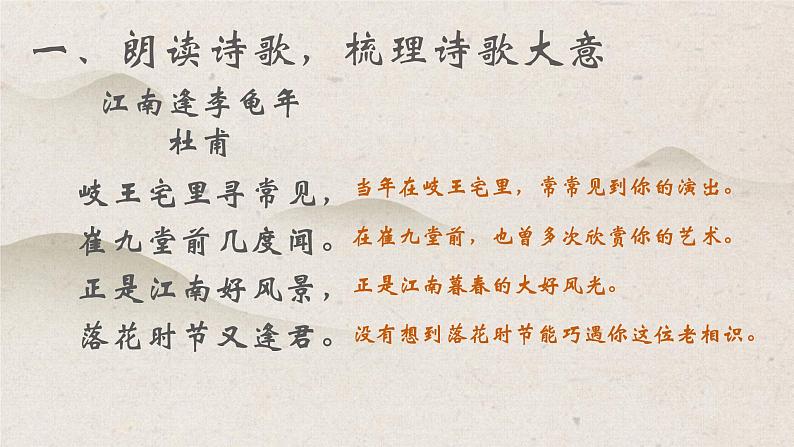 一、朗读诗歌，梳理诗歌大意
江南逢李龟年
杜甫
岐王宅里寻常见，
当年在岐王宅里，常常见到你的演出。
崔九堂前几度闻。
在崔九堂前，也曾多次欣赏你的艺术。
正是江南好风景，
正是江南暮春的大好风光。
落花时节又逢君。
没有想到落花时节能巧遇你这位老相识。